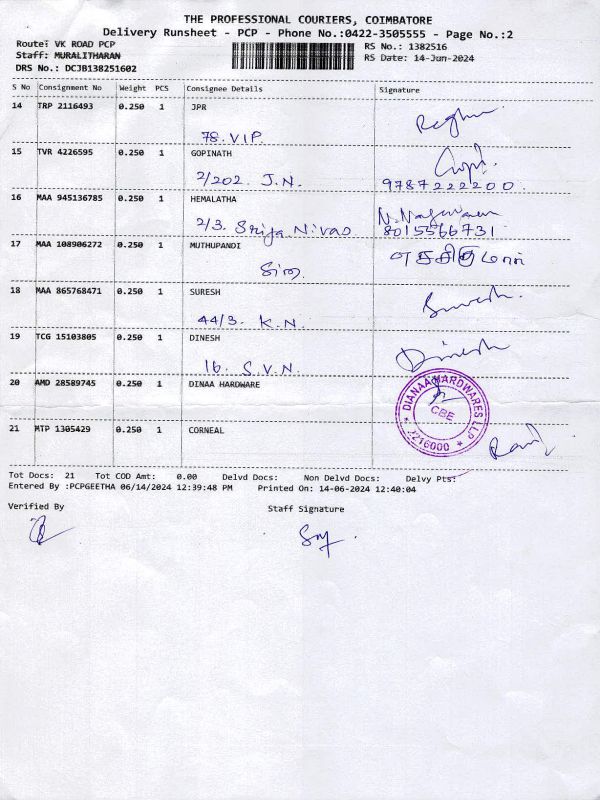 THE PROFESSIONAL COURIERS, COIMBATORE
Delivery Runsheet - PCP - Phone No.:0422-3505555 - Page No.:2
Route: VK ROAD PCP RS No.: 1382516
Staff: MURALITHARAN RS Date: 14-Jun-2024
DRS No.: DCJB138251602
S No Consignment No Weight PCS Consignee Details Signature
14 TRP 2116493 0.250 1 JPR Raghu
78. V.I.P.
15 TVR 4226595 0.250 1 GOPINATH Gopi
2/202. J.N. 9787222200
16 MAA 945136785 0.250 1 HEMALATHA
2/3. Srija Nivas 8015566731
17 MAA 108906272 0.250 1 MUTHUPANDI
18 MAA 865768471 0.250 1 SURESH Suresh.
44/3. K.N.
19 TCG 15103805 0.250 1 DINESH Dinesh
16. S.V.N.
20 AMD 28589745 0.250 1 DINAA HARDWARE
DIANAA HARDWARES LLP
CBE
21 MTP 1305429 0.250 1 CORNEAL
Tot Docs: 21 Tot COD Amt: 0.00 Delvd Docs: Non Delvd Docs: Delvy Pts:
Entered By :PCPGEETHA 06/14/2024 12:39:48 PM Printed On: 14-06-2024 12:40:04
Verified By Staff Signature